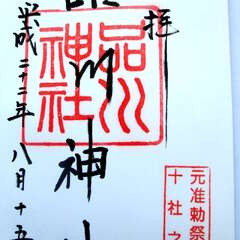 拝
元准勅祭
十社之
川神
品川
神社
平成二十二年八月十五